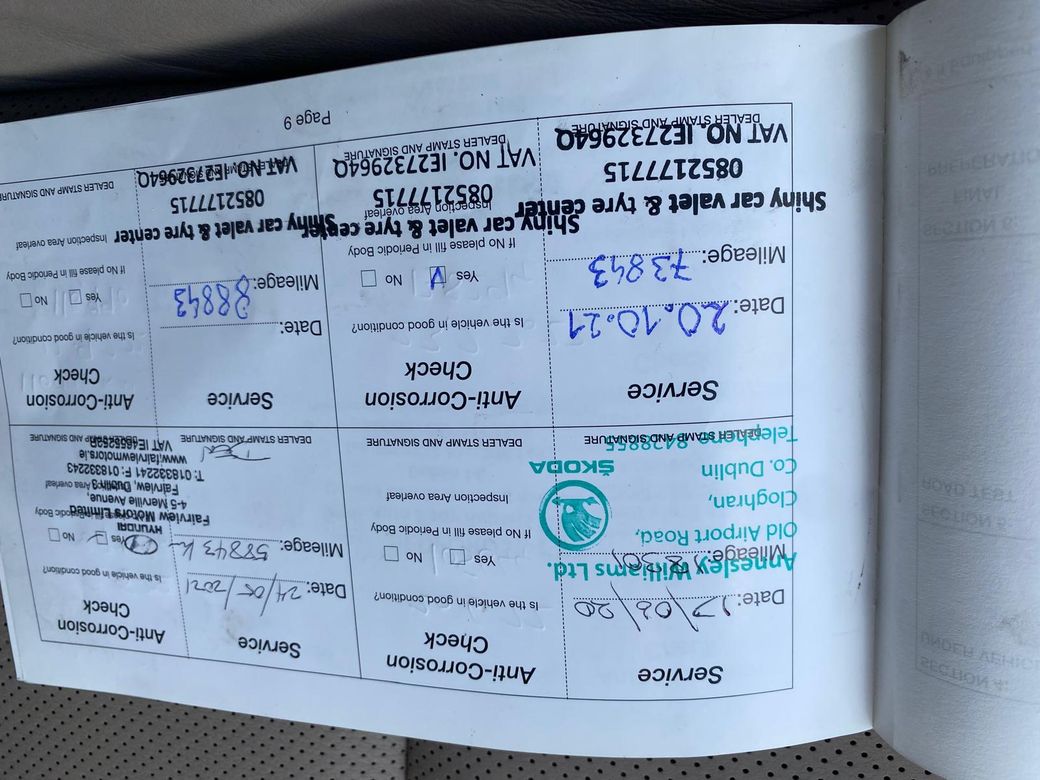 Service
Date: 17/06/20
Mileage:
Annesley Williams Ltd.
Old Airport Road,
Cloghran,
Co. Dublin
ŠKODA
Telephone 8428855
DEALER STAMP AND SIGNATURE
Anti-Corrosion
Check
Is the vehicle in good condition?
Yes No
If No please fill in Periodic Body
Inspection Area overleaf
DEALER STAMP AND SIGNATURE
Service
Date: 24/05/2021
Mileage: 58843 k
HYUNDAI
Fairview Motors Limited
4-5 Merville Avenue,
Fairview, Dublin 3
T: 018332241 F: 018332243
www.fairviewmotors.ie
DEALER STAMP AND SIGNATURE
Anti-Corrosion
Check
Is the vehicle in good condition?
Yes No
Periodic Body
Area overleaf
DEALER STAMP AND SIGNATURE
Service
Date: 20.10.21
Mileage: 73843
Shiny car valet & tyre center
0852177715
VAT NO. IE2732964Q
DEALER STAMP AND SIGNATURE
Anti-Corrosion
Check
Is the vehicle in good condition?
Yes No
If No please fill in Periodic Body
Inspection Area overleaf
Shiny car valet & tyre center
0852177715
VAT NO. IE2732964Q
DEALER STAMP AND SIGNATURE
Service
Date:
Mileage: 88843
Shiny car valet & tyre center
0852177715
VAT NO. IE2732964Q
Anti-Corrosion
Check
Is the vehicle in good condition?
Yes No
If No please fill in Periodic Body
Inspection Area overleaf
DEALER STAMP AND SIGNATURE
Page 9